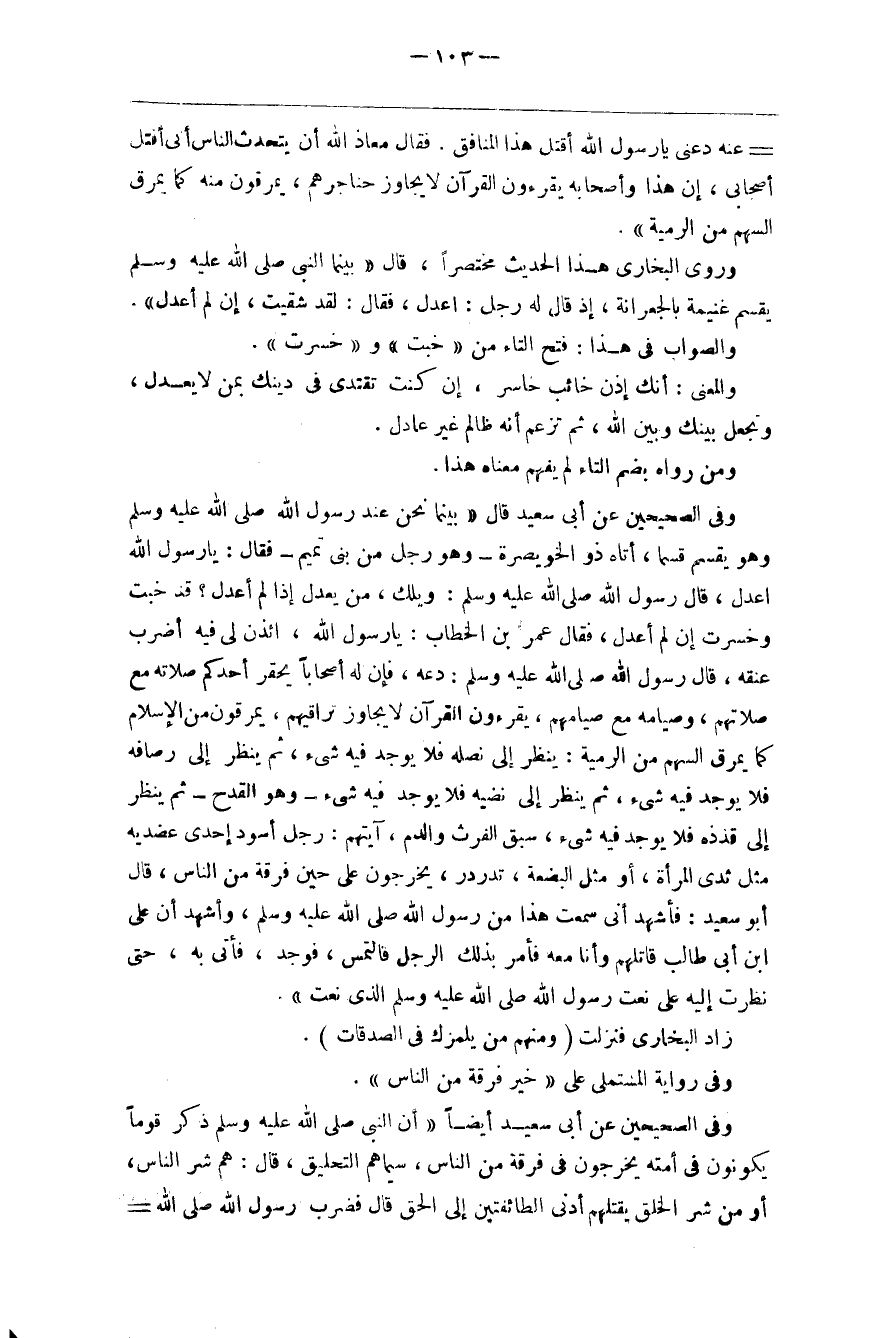 — ١٠٣ —
= عنه دعنى يارسول الله أقتل هذا المنافق . فقال معاذ الله أن يتحدث الناس أنى أقتل
أصحابى ، إن هذا وأصحابه يقرءون القرآن لايجاوز حناجرهم ، يمرقون منه كما يمرق
السهم من الرمية » .
وروى البخارى هـذا الحديث مختصراً ، قال « بينما النبى صلى الله عليه وسـلم
يقسم غنيمة بالجعرانة ، إذ قال له رجل : اعدل ، فقال : لقد شقيت ، إن لم أعدل» .
والصواب فى هـذا : فتح التاء من « خبت » و « خسرت » .
والمعنى : أنك إذن خائب خاسر ، إن كنت تقتدى فى دينك بمن لايعـدل ،
وتجعل بينك وبين الله ، ثم تزعم أنه ظالم غير عادل .
ومن رواه بضم التاء لم يفهم معناه هذا .
وفى الصحيحين عن أبى سعيد قال « بينما نحن عند رسول الله صلى الله عليه وسلم
وهو يقسم قسما ، أتاه ذو الخويصرة – وهو رجل من بنى تميم – فقال : يارسول الله
اعدل ، قال رسول الله صلى الله عليه وسلم : ويلك ، من يعدل إذا لم أعدل ؟ قد خبت
وخسرت إن لم أعدل ، فقال عمر بن الخطاب : يارسول الله ، ائذن لى فيه أضرب
عنقه ، قال رسول الله صلى الله عليه وسلم : دعه ، فإن له أصحاباً يحقر أحدكم صلاته مع
صلاتهم ، وصيامه مع صيامهم ، يقرءون القرآن لايجاوز تراقيهم ، يمرقون من الإسلام
كما يمرق السهم من الرمية : ينظر إلى نصله فلا يوجد فيه شىء ، ثم ينظر إلى رصافه
فلا يوجد فيه شىء ، ثم ينظر إلى نضيه فلا يوجد فيه شىء – وهو القدح – ثم ينظر
إلى قذذه فلا يوجد فيه شىء ، سبق الفرث والدم ، آيتهم : رجل أسود إحدى عضديه
مثل ثدى المرأة ، أو مثل البضعة ، تدردر ، يخرجون على حين فرقة من الناس ، قال
أبو سعيد : فأشهد أنى سمعت هذا من رسول الله صلى الله عليه وسلم ، وأشهد أن على
ابن أبى طالب قاتلهم وأنا معه فأمر بذلك الرجل فالتمس ، فوجد ، فأتى به ، حتى
نظرت إليه على نعت رسول الله صلى الله عليه وسلم الذى نعت » .
زاد البخارى فنزلت ( ومنهم من يلمزك فى الصدقات ) .
وفى رواية المستملى على « خير فرقة من الناس » .
وفى الصحيحين عن أبى سعيـد أيضـاً « أن النبى صلى الله عليه وسلم ذكر قوماً
يكونون فى أمته يخرجون فى فرقة من الناس ، سيماهم التحليق ، قال : هم شر الناس،
أو من شر الخلق يقتلهم أدنى الطائفتين إلى الحق قال فضرب رسول الله صلى الله =